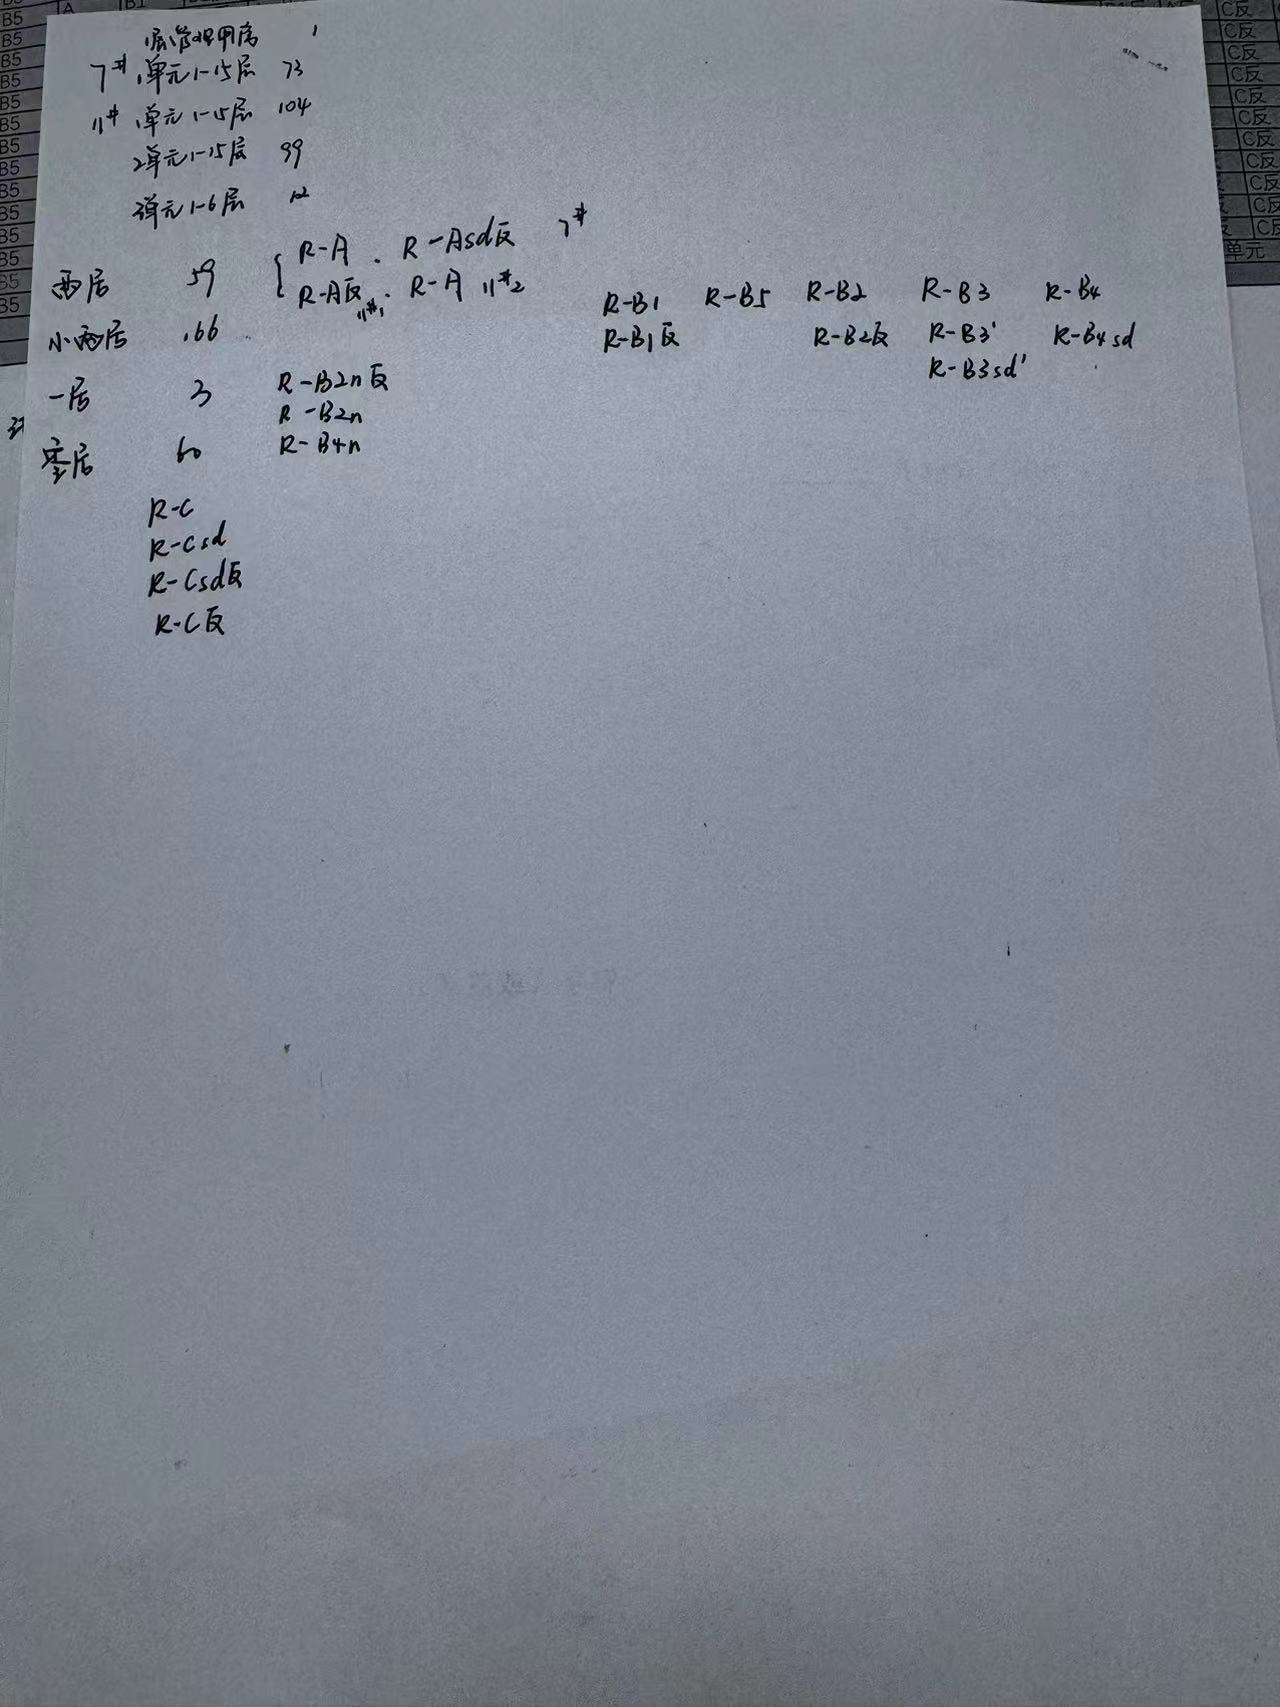 1层管理用房 1
7# 1单元1-15层 73
11# 1单元1-15层 104
2单元1-15层 99
3单元1-6层 12
两居 59 R-A . R-Asd反 7#
R-A反 11#1 . R-A 11#2
小两居 166
R-B1 R-B5 R-B2 R-B3 R-B4
R-B1反 R-B2反 R-B3' R-B4sd
R-B3sd'
一居 3 R-B2n反
R-B2n
R-B4n
零居 60
R-C
R-Csd
R-Csd反
R-C反
B5 A B1
B5
B5
B5
B5
B5
B5
B5
B5
B5
B5
B5
B5
C反
C反
C反
C反
C反
C反
C反
C反
C反
C反
单元